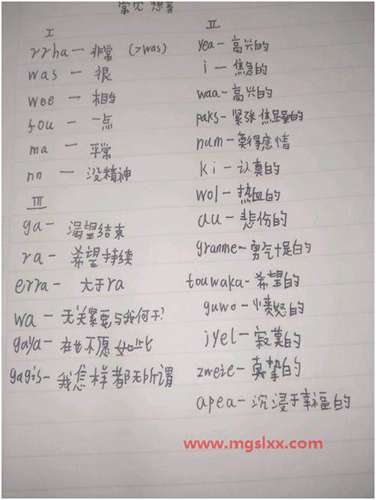 常见 想音
I
rrha — 非常 (>was)
was — 很
wee — 相当
fou — 一点
ma — 平常
nn — 没精神
III
ga — 渴望结束
ra — 希望持续
erra — 大于ra
wa — 无关紧要与我何干?
gaya — 在也不愿如此
gagis — 我怎样都无所谓
II
yea - 高兴的
i - 焦急的
waa - 高兴的
paks - 紧张 焦虑的
num - 莫得感情
ki - 认真的
wol - 热血的
au - 悲伤的
granme - 勇气十足的
touwaka - 希望的
guwo - 愤怒的
jyel - 寂寞的
zweie - 真挚的
apea - 沉浸于幸福的
www.mgslxx.com